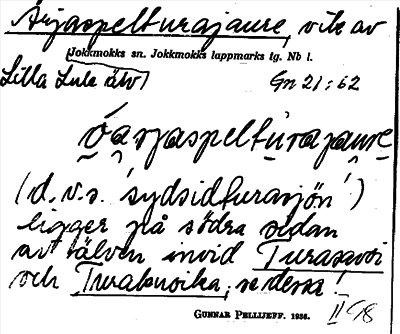 Årjaspelturajaure, vik av
Jokkmokks sn. Jokkmokks lappmarks tg. Nb l.
Lilla Lule älv) Gn 21:62
oarjaspelturajaure
(d.v.s. 'sydsidturasjön')
ligger på södra sidan
av älven invid Turasavvi
och Turakuoika, se dessa!
GUNNAR PELLIJEFF. 1936. II 98